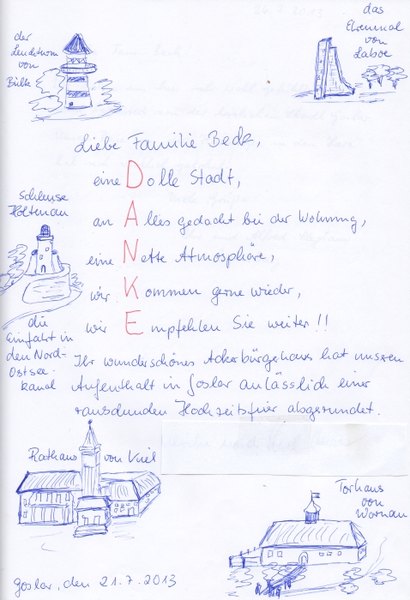 der
Leuchtturm
von
Bülk
das
Ehrenmal
von
Laboe
Liebe Familie Beck,
eine Dolle Stadt,
an Alles gedacht bei der Wohnung,
eine Nette Atmosphäre,
wir Kommen gerne wieder,
wir Empfehlen Sie weiter!!
Schleuse
Holtenau
die
Einfahrt in
den Nord-
Ostsee-
kanal
Ihr wunderschönes Ackerbürgerhaus hat unseren
Aufenthalt in Goslar anlässlich einer
rauschenden Hochzeitsfeier abgerundet.
Rathaus von Kiel
Torhaus
von
Goslar, den 21.7.2013